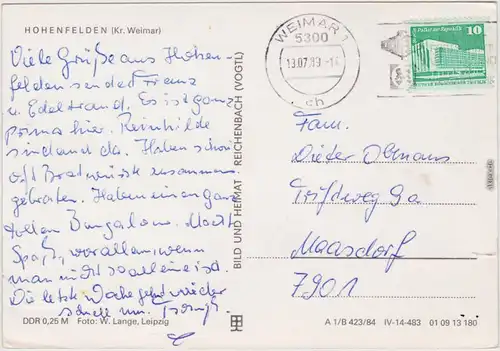 HOHENFELDEN (Kr. Weimar)
Viele Grüße aus Hohen-
felden senden Franz
u. Edeltraud. Es ist ganz
prima hier. Reinhilde
sind auch da. Haben schon
oft Bratwurst zusammen
gebraten. Haben einen ganz
tollen Bungalow. Macht
Spaß, vor allem, wenn
man nicht so allein ist.
Die letzte Woche geht wieder
schnell um. Tschüß
BILD UND HEIMAT REICHENBACH (VOGTL)
WEIMAR 1
5300
13.07.89
ch
10
Fam.
Dieter Ohmaus
Triftweg 9a
Maasdorf
7901
DDR 0,25 M Foto: W. Lange, Leipzig
A 1/B 423/84 IV-14-483 01 09 13 180